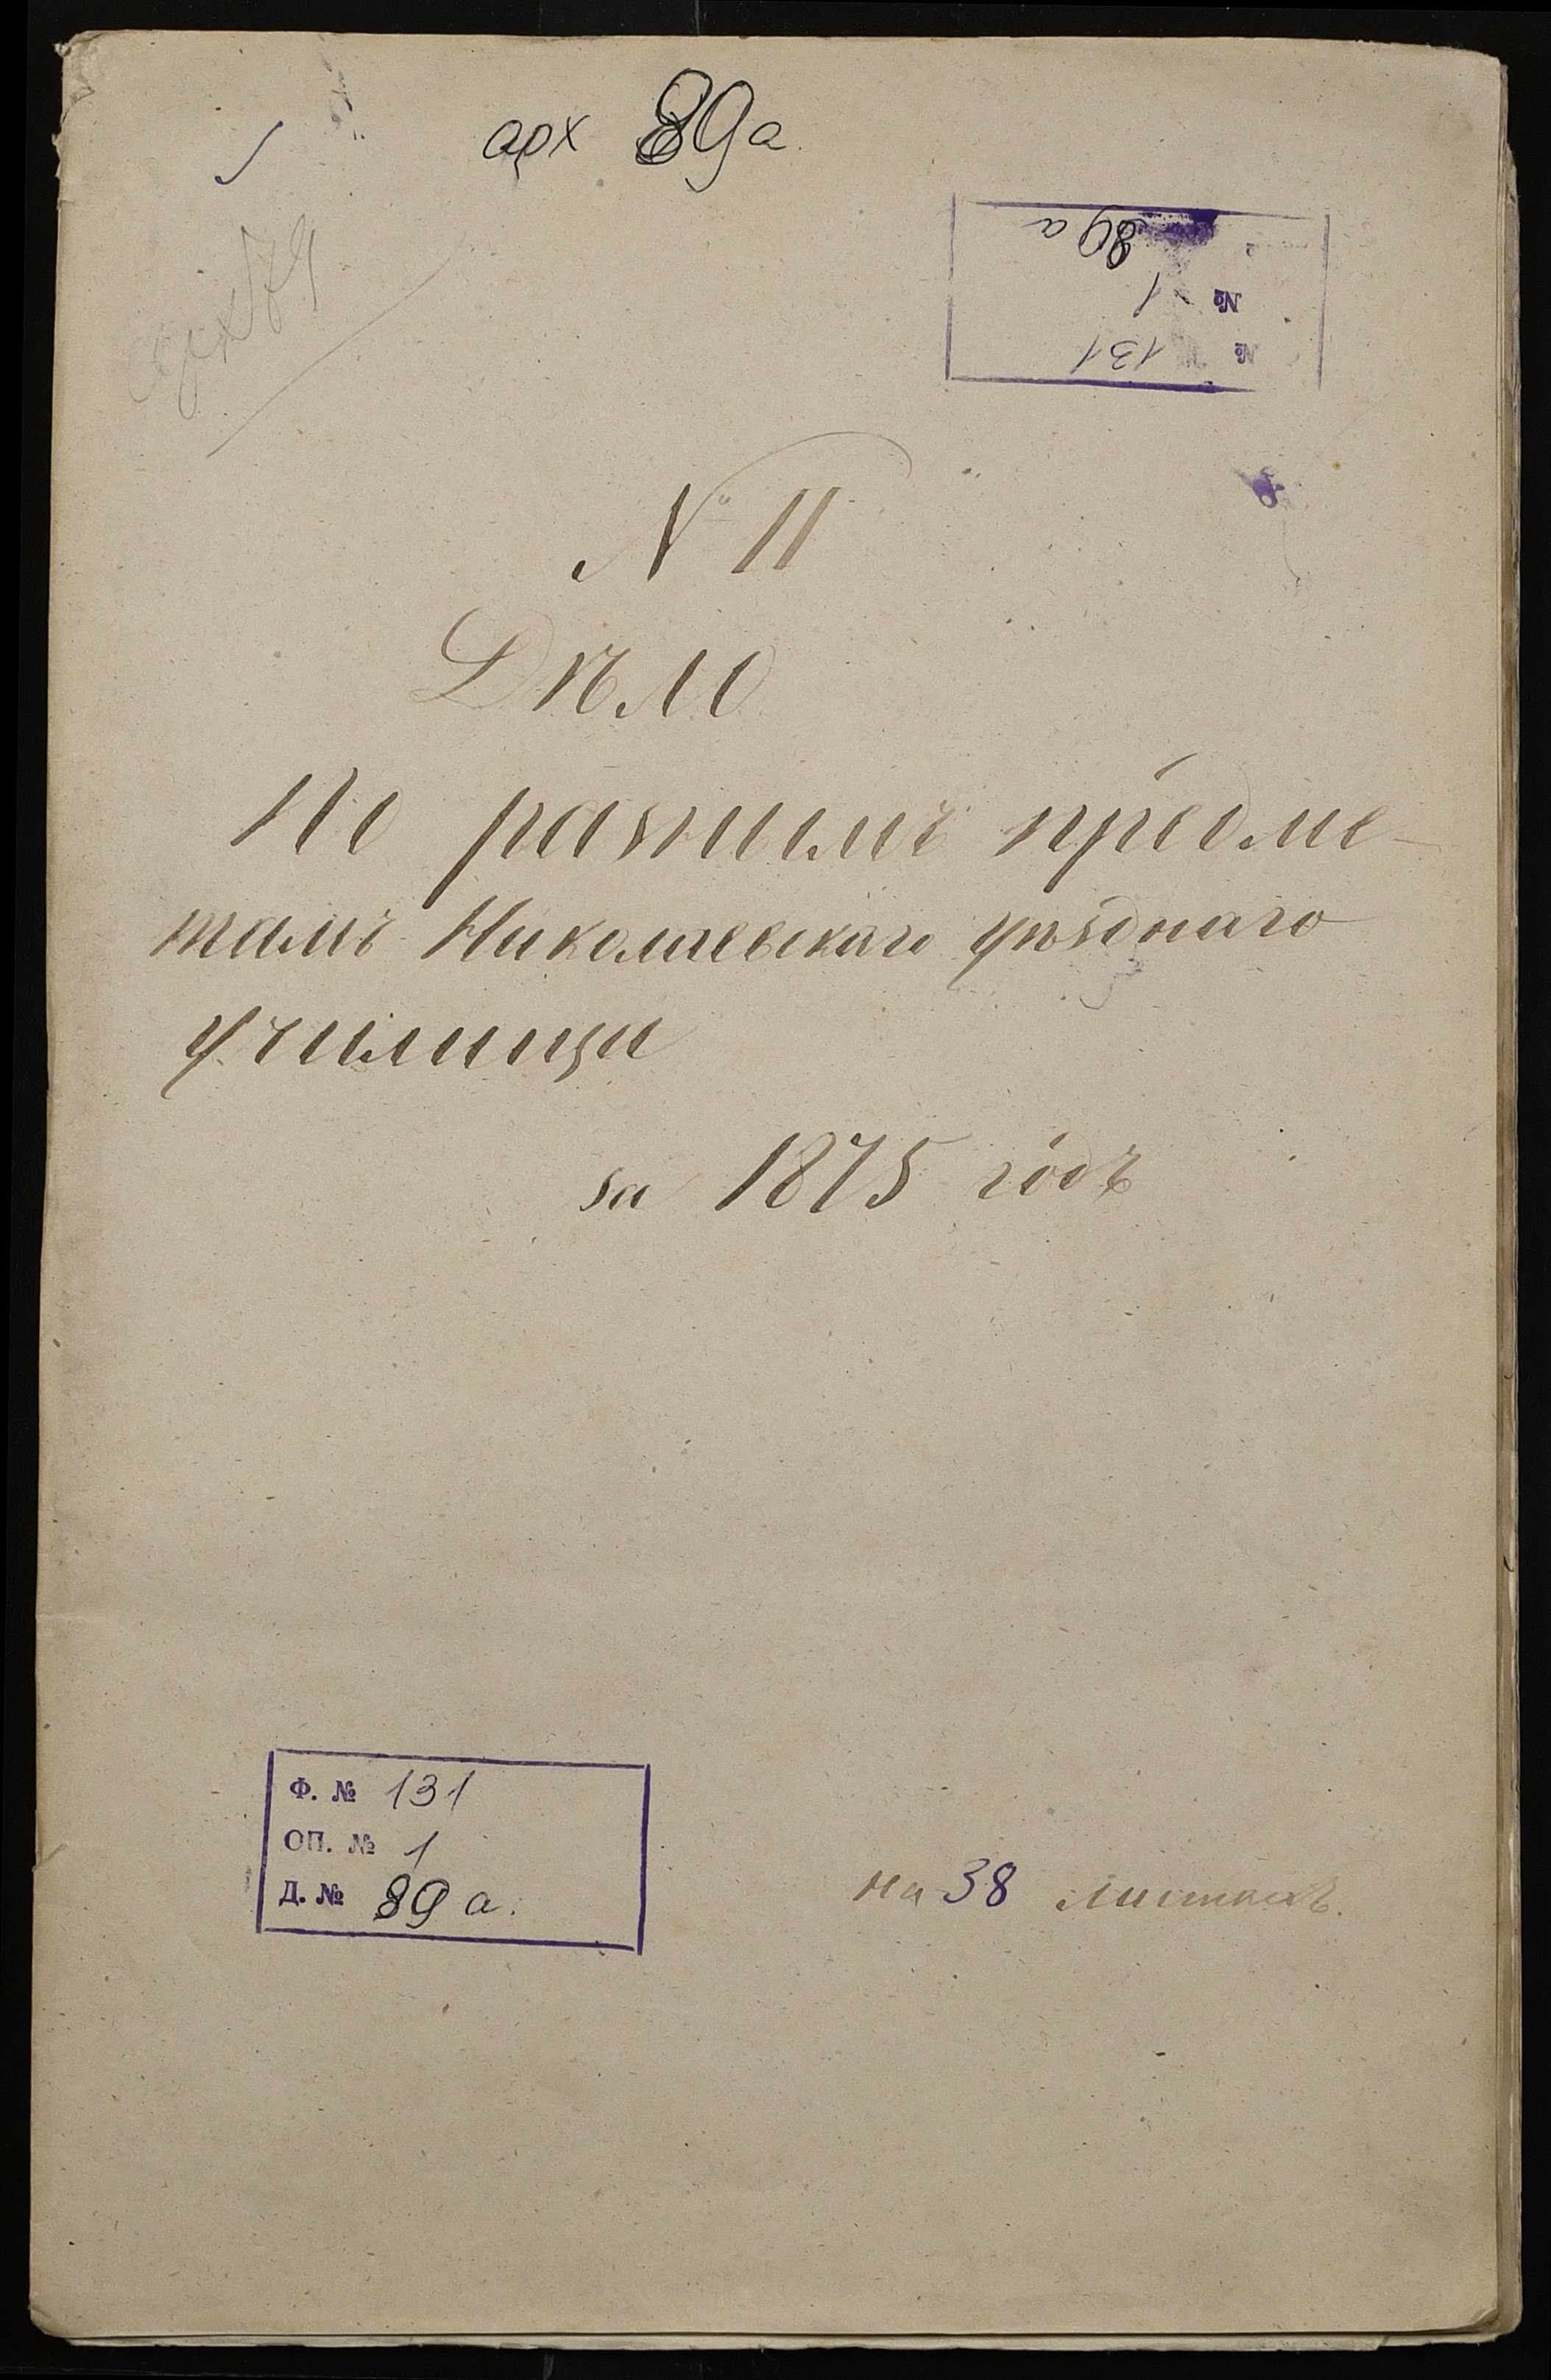 арх 89а.
89а
№ 1
№ 131
№ 11
Дѣло
По разнымъ предме-
тамъ Николаевскаго уѣзднаго
училища
за 1875 годъ
Ф. № 131
ОП. № 1
Д. № 89 а.
на 38 листахъ.